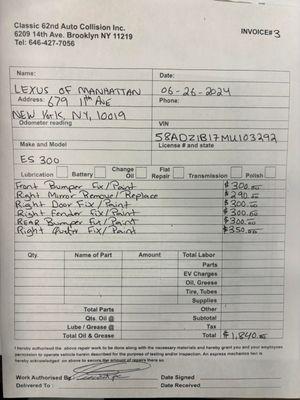 Classic 62nd Auto Collision Inc.
6209 14th Ave. Brooklyn NY 11219
Tel: 646-427-7056
INVOICE#3
Name: Date:
LEXUS OF MANHATTAN 06-26-2024
Address: 679 11th AVE Phone:
NEW YORK, NY, 10019
Odometer reading VIN
58ADZ1B17MU103292
Make and Model License # and state
ES 300
Lubrication Battery Change Oil Flat Repair Transmission Polish
Front Bumper Fix/Paint $300.00
Right Mirror Remove/Replace $290.00
Right Door Fix/Paint $300.00
Right Fender Fix/Paint $300.00
REAR Bumper Fix/Paint $300.00
Right Quater Fix/Paint $350.00
Qty. Name of Part Amount Total Labor
Parts
EV Charges
Oil, Grease
Tire, Tubes
Supplies
Total Parts Other
Qts. Oil @ Subtotal
Lube / Grease @ Tax
Total Oil & Grease Total $1,840.00
I hereby authorized the above repair work to be done along with the necessary materials and hereby grant you and your employees
permission to operate vehicle herein described for the purpose of testing and/or inspection. An express mechanics lien is
hereby acknowledged on above to secure the amount of repairs there so
Work Authorised By Date Signed
Delivered To : Date Received